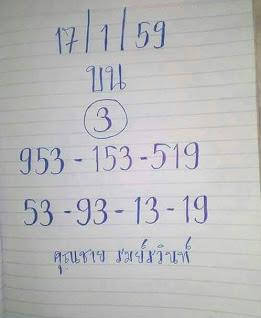 17/1/59
บน
3
953-153-519
53-93-13-19
คุณชาย รมย์รวินท์